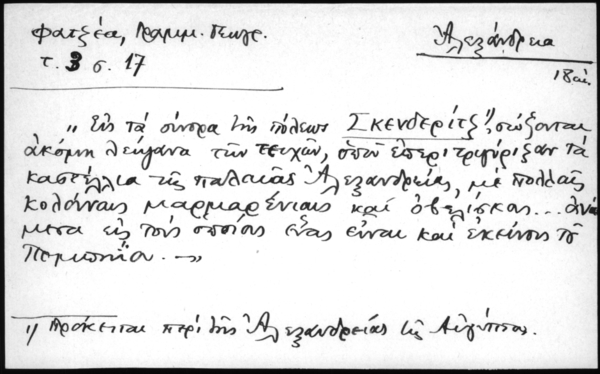 Φατζέα, Γραμμ. Γεωγρ.
τ. 3 σ. 17
Ἀλεξάνδρεια
18 αἰ.
„ Εἰς τὰ σύνορα τῆς πόλεως Σκενδερίτζ¹⁾, σώζονται
ἀκόμη λείψανα τῶν τειχῶν, ὁποῦ ἐπεριτριγύριζαν τὰ
καστέλλια τῆς παλαιᾶς Ἀλεξανδρείας, μὲ πολλαῖς
κολόνναις μαρμαρένιαις καὶ ὀβελίσκους... ἀνά
μεσα εἰς τοὺς ὁποίους ἕνας εἶναι καὶ ἐκεῖνος τοῦ
Πομπηΐου. — „
1) Πρόκειται περὶ τῆς Ἀλεξανδρείας τῆς Αἰγύπτου.